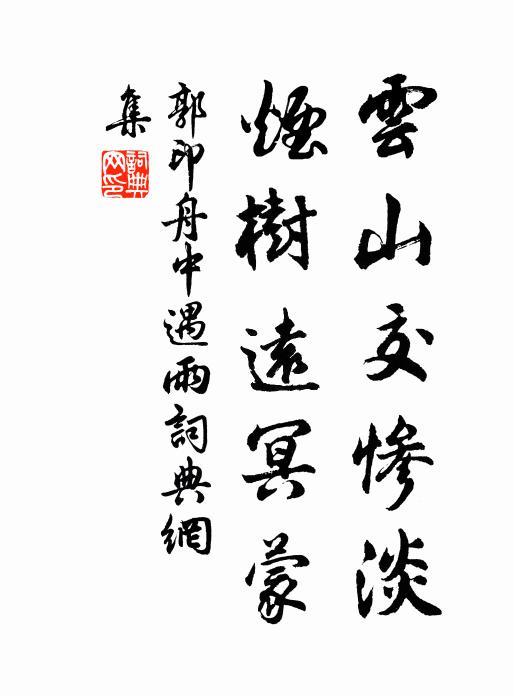 雲山交慘淡
煙樹遠冥蒙
郭印舟中遇雨詞典網
集
詞典網印